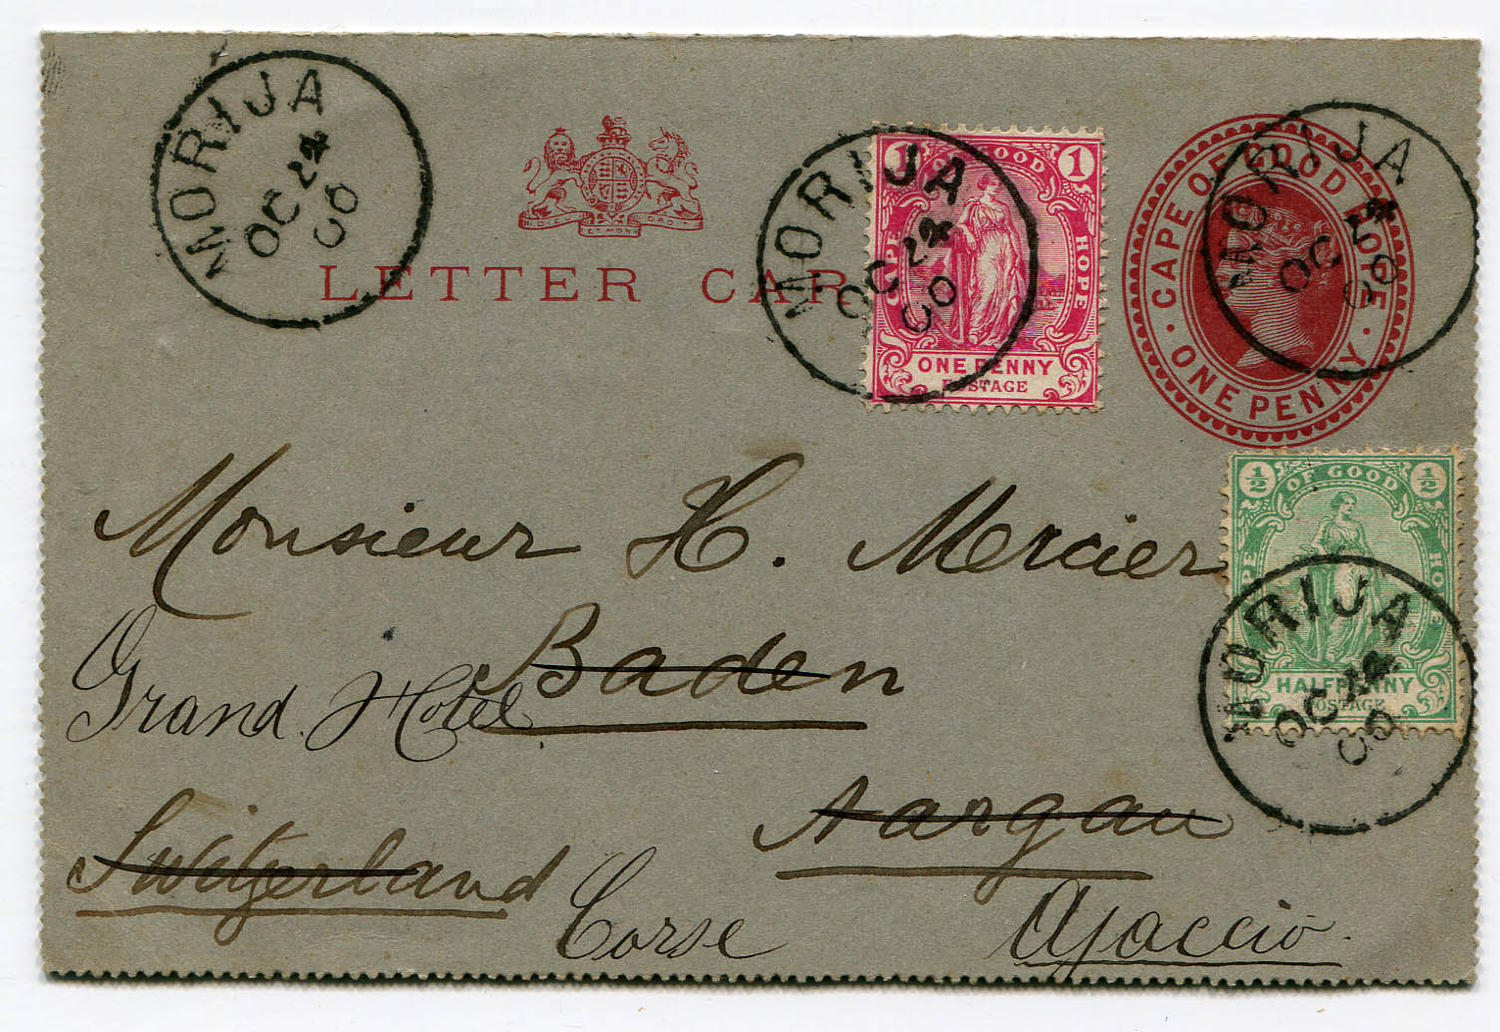 MORIJA
OC 24
00
LETTER CAR
MORIJA
OC 24
00
1 OF GOOD 1
CAPE HOPE
ONE PENNY
POSTAGE
CAPE OF GOOD HOPE
ONE PENNY
MORIJA
OC 24
00
Monsieur H. Mercier
½ OF GOOD ½
PE HOPE
HALFPENNY
POSTAGE
MORIJA
OC 24
00
Baden
Grand Hotel
Aargau
Switzerland
Corse Ajaccio